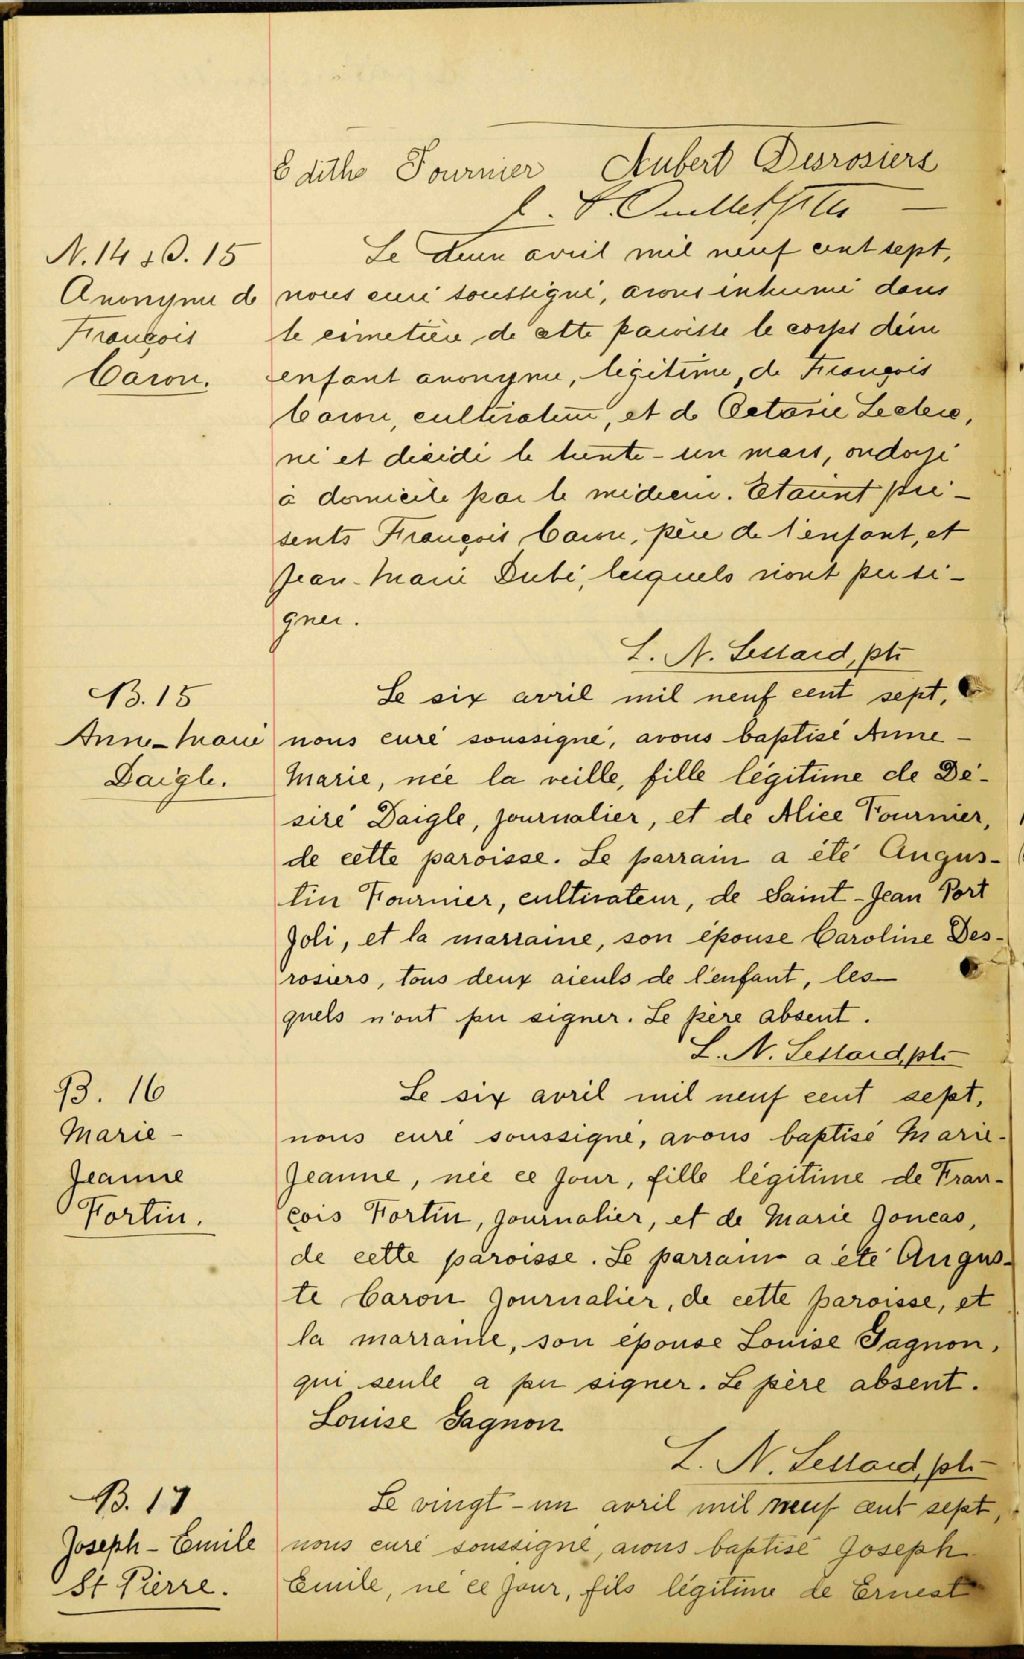 Edithe Fournier Aubert Desrosiers
N. 14 & S. 15
Anonyme de
François
Caron.
Le deux avril mil neuf cent sept,
nous curé soussigné, avons inhumé dans
le cimetière de cette paroisse le corps d'un
enfant anonyme, légitime, de François
Caron, cultivateur, et de Octavie Leclerc,
né et décédé le trente-un mars, ondoyé
à domicile par le médecin. Etaient pré-
sents François Caron, père de l'enfant, et
Jean-Marie Dubé, lesquels n'ont pu si-
gner.
L. N. Lessard, ptr
B. 15
Anne-Marie
Daigle.
Le six avril mil neuf cent sept,
nous curé soussigné, avons baptisé Anne-
Marie, née la veille, fille légitime de Dé-
siré Daigle, journalier, et de Alice Fournier,
de cette paroisse. Le parrain a été Augus-
tin Fournier, cultivateur, de Saint-Jean Port
Joli, et la marraine, son épouse Caroline Des-
rosiers, tous deux aieuls de l'enfant, les-
quels n'ont pu signer. Le père absent.
L. N. Lessard, ptr
B. 16
Marie-
Jeanne
Fortin.
Le six avril mil neuf cent sept,
nous curé soussigné, avons baptisé Marie-
Jeanne, née ce jour, fille légitime de Fran-
çois Fortin, journalier, et de Marie Joncas,
de cette paroisse. Le parrain a été Augus-
te Caron journalier, de cette paroisse, et
la marraine, son épouse Louise Gagnon,
qui seule a pu signer. Le père absent.
Louise Gagnon
L. N. Lessard, ptr
B. 17
Joseph-Emile
St Pierre.
Le vingt-un avril mil neuf cent sept,
nous curé soussigné, avons baptisé Joseph
Emile, né ce jour, fils légitime de Ernest